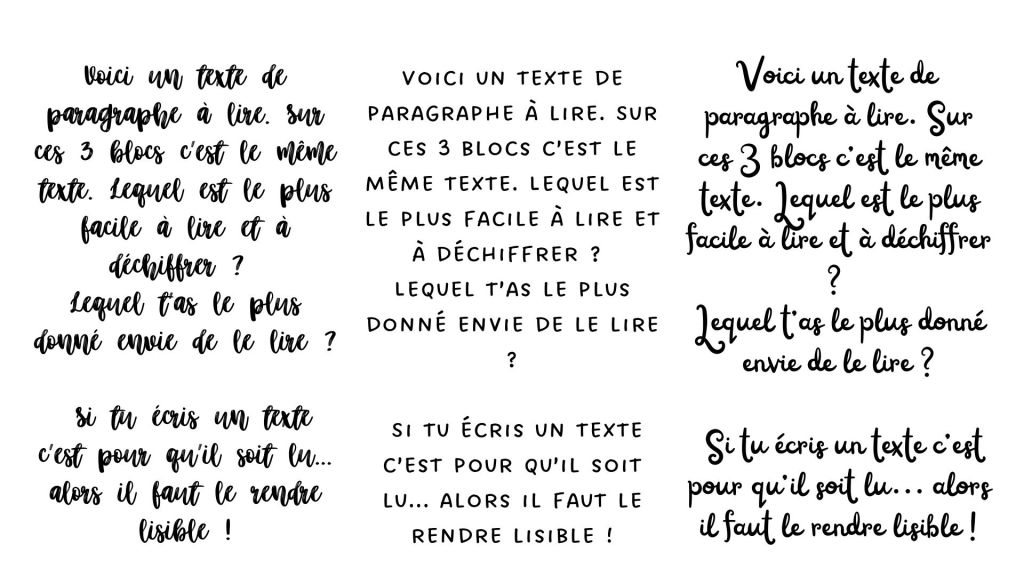 Voici un texte de
paragraphe à lire. Sur
ces 3 blocs c'est le même
texte. Lequel est le plus
facile à lire et à
déchiffrer ?
Lequel t'as le plus
donné envie de le lire ?
Si tu écris un texte
c'est pour qu'il soit lu...
alors il faut le rendre
lisible !
VOICI UN TEXTE DE
PARAGRAPHE À LIRE. SUR
CES 3 BLOCS C'EST LE
MÊME TEXTE. LEQUEL EST
LE PLUS FACILE À LIRE ET
À DÉCHIFFRER ?
LEQUEL T'AS LE PLUS
DONNÉ ENVIE DE LE LIRE
?
SI TU ÉCRIS UN TEXTE
C'EST POUR QU'IL SOIT
LU... ALORS IL FAUT LE
RENDRE LISIBLE !
Voici un texte de
paragraphe à lire. Sur
ces 3 blocs c'est le même
texte. Lequel est le plus
facile à lire et à déchiffrer
?
Lequel t'as le plus donné
envie de le lire ?
Si tu écris un texte c'est
pour qu'il soit lu... alors
il faut le rendre lisible !